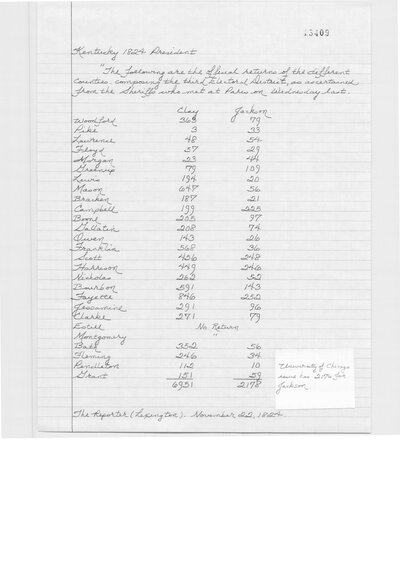 13409
Kentucky 1824 President
"The following are the official returns of the different
Counties, composing the third Electoral District, as ascertained
from the Sheriffs who met at Paris on Wednesday last.
Clay Jackson
Woodford 365 79
Pike 3 33
Lawrence 48 54
Floyd 57 29
Morgan 23 44
Greenup 79 109
Lewis 194 20
Mason 647 56
Bracken 187 21
Campbell 199 225
Boone 205 97
Gallatin 208 74
Owen 143 26
Franklin 568 36
Scott 456 248
Harrison 449 246
Nicholas 262 52
Bourbon 591 143
Fayette 846 252
Jessamine 291 96
Clarke 271 79
Estill No Return
Montgomery "
Bath 352 56
Fleming 246 34
Pendleton 112 10
Grant 151 59
6951 2178
University of Chicago
has 2176 for
Jackson
The Reporter (Lexington). November 22, 1824.